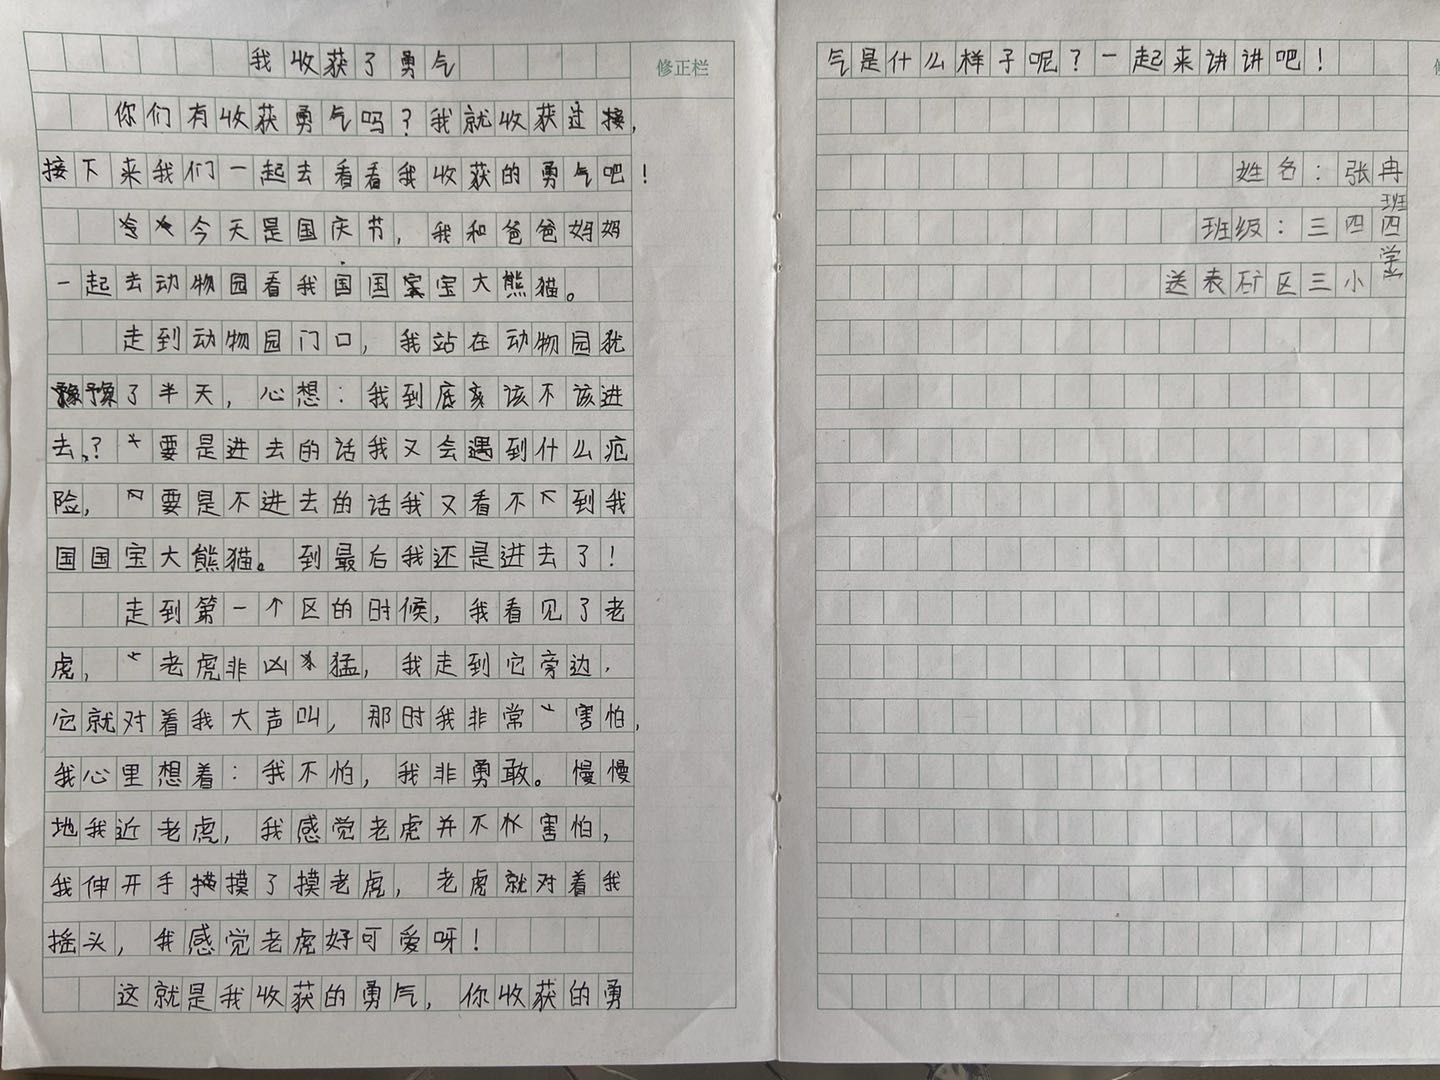 我收获了勇气
修正栏
你们有收获勇气吗?我就收获过接,
接下来我们一起去看看我收获的勇气吧!
今天是国庆节,我和爸爸妈妈
一起去动物园看我国国宝大熊猫。
走到动物园门口,我站在动物园犹
豫了半天,心想:我到底该不该进
去?要是进去的话我又会遇到什么危
险,要是不进去的话我又看不到我
国国宝大熊猫。到最后我还是进去了!
走到第一个区的时候,我看见了老
虎,老虎非凶猛,我走到它旁边.
它就对着我大声叫,那时我非常害怕,
我心里想着:我不怕,我非勇敢。慢慢
地我近老虎,我感觉老虎并不害怕,
我伸开手摸了摸老虎,老虎就对着我
摇头,我感觉老虎好可爱呀!
这就是我收获的勇气,你收获的勇
气是什么样子呢?一起来讲讲吧!
姓名:张冉
班级:三四班
送表矿区三小学